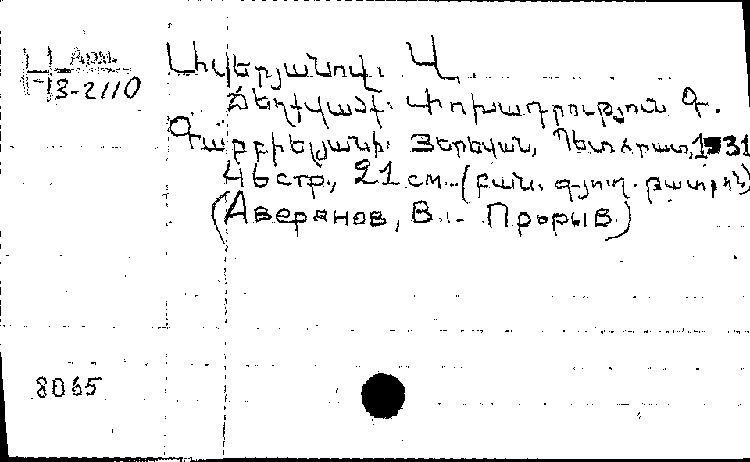 Арм.
Н 3-2110
Ավերյանով, Վ.
Ճեղքվածք. Փոխադրություն Գ.
Գաբրիելյանի. Յերեվան, Պետհրատ, 1931
46 стр., 21 см. (բան. գյուղ. թատրոն)
(Аверянов, В. - Прорыв)
8065